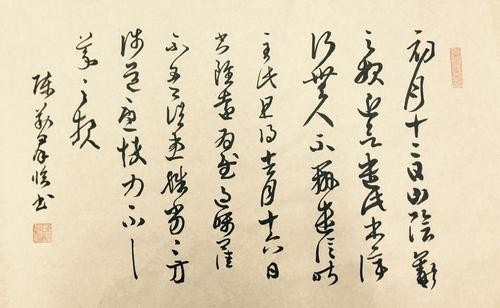 初月十二日山陰羲
之報近欲遣此書停
行無人不辦遣信昨
至此且得去月十六日
書雖遠為慰過囑卿佳
不吾諸患殊劣〻方
涉道憂悴力不具
羲之報
陳 臨書